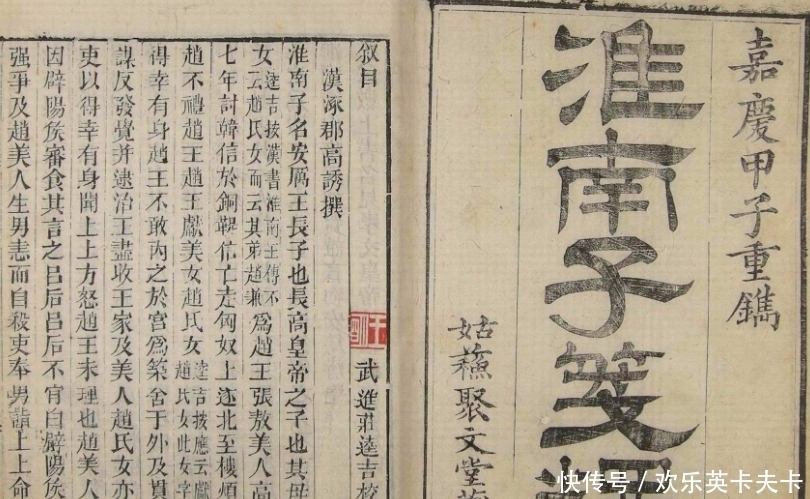 嘉慶甲子重鐫
淮南子箋
姑蘇聚文堂
叙目
漢涿郡高誘撰
武進莊逵吉校
淮南子名安厲王長子也長高皇帝之子也其母
女逵吉按漢書淮南王傳不云趙氏女而云其弟趙兼為趙王張敖美人高
七年討韓信於銅鞮信亡走匈奴上遂北至樓煩
趙不禮趙王趙王獻美女趙氏女逵吉按應云獻趙氏女此女字
得幸有身趙王不敢內之於宮為築舍于外及貫
謀反發覺并逮治王盡收王家及美人趙氏女亦
吏以得幸有身聞上上方怒趙王未理也趙美人
因辟陽侯審食其言之呂后呂后不肯白辟陽侯
强爭及趙美人生男恚而自殺吏奉男詣上上命
快传号/欢乐英卡夫卡